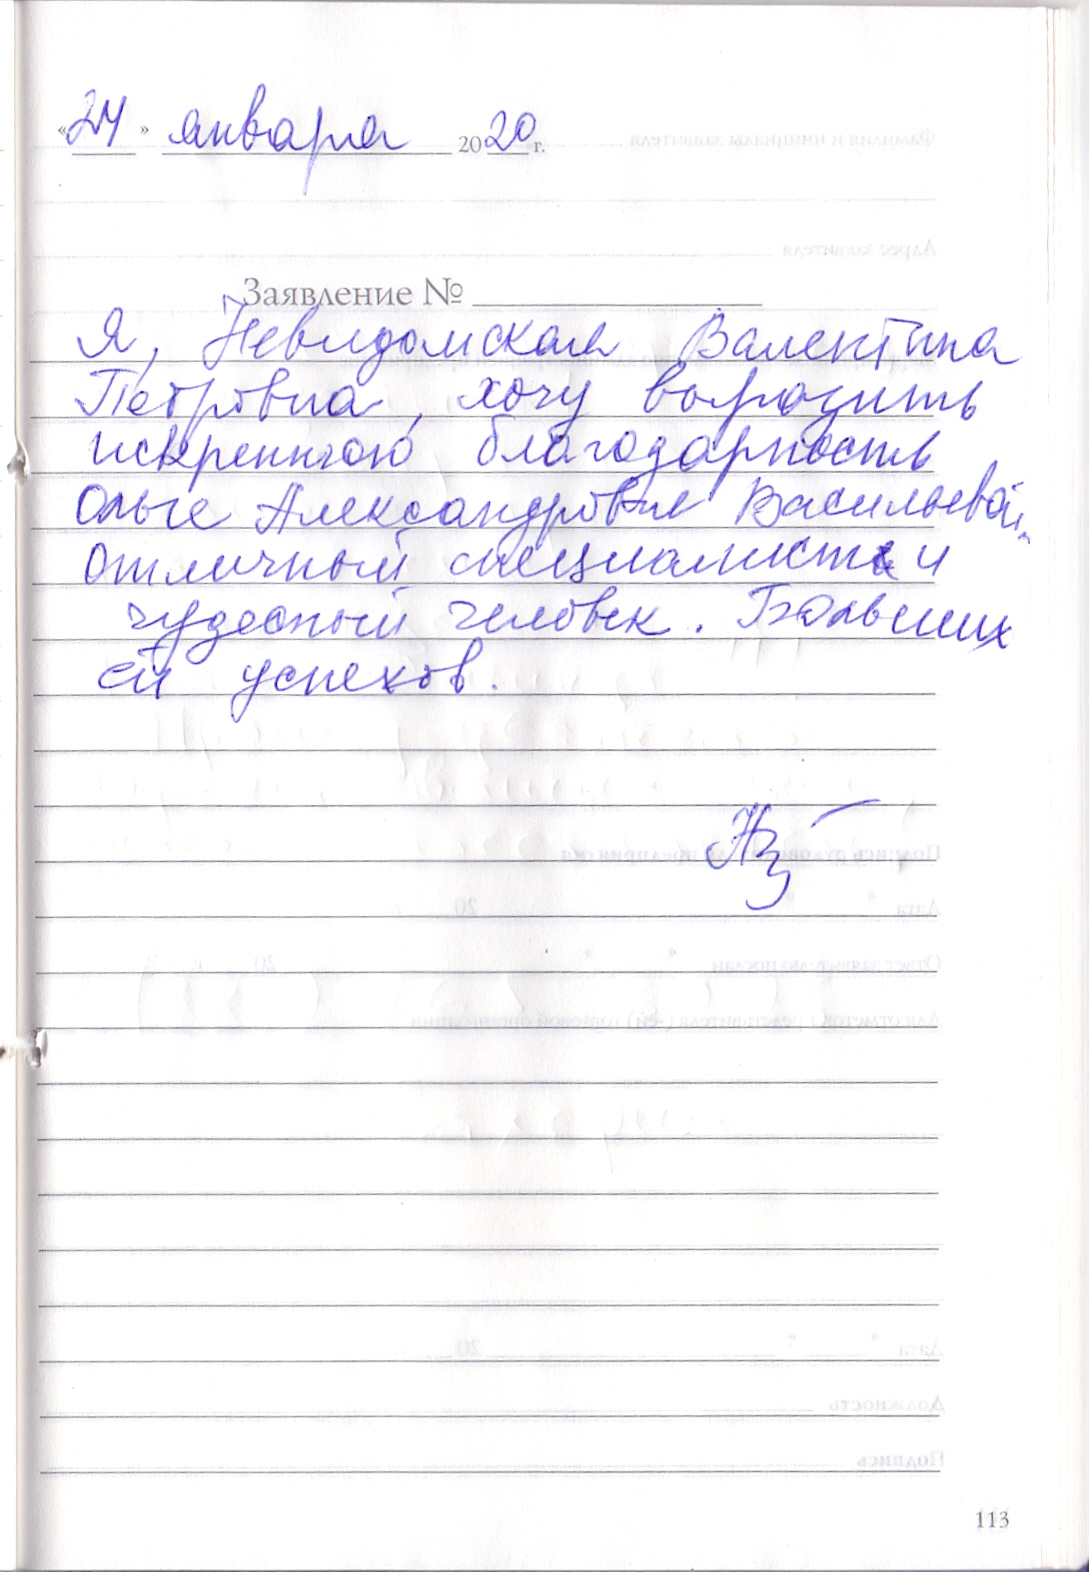 «24» января 2020 г.
Заявление №
Я, Невидомская Валентина
Петровна, хочу выразить
искреннюю благодарность
Ольге Александровне Васильевой.
Отличный специалист и
чудесный человек. Больших
ей успехов.
113